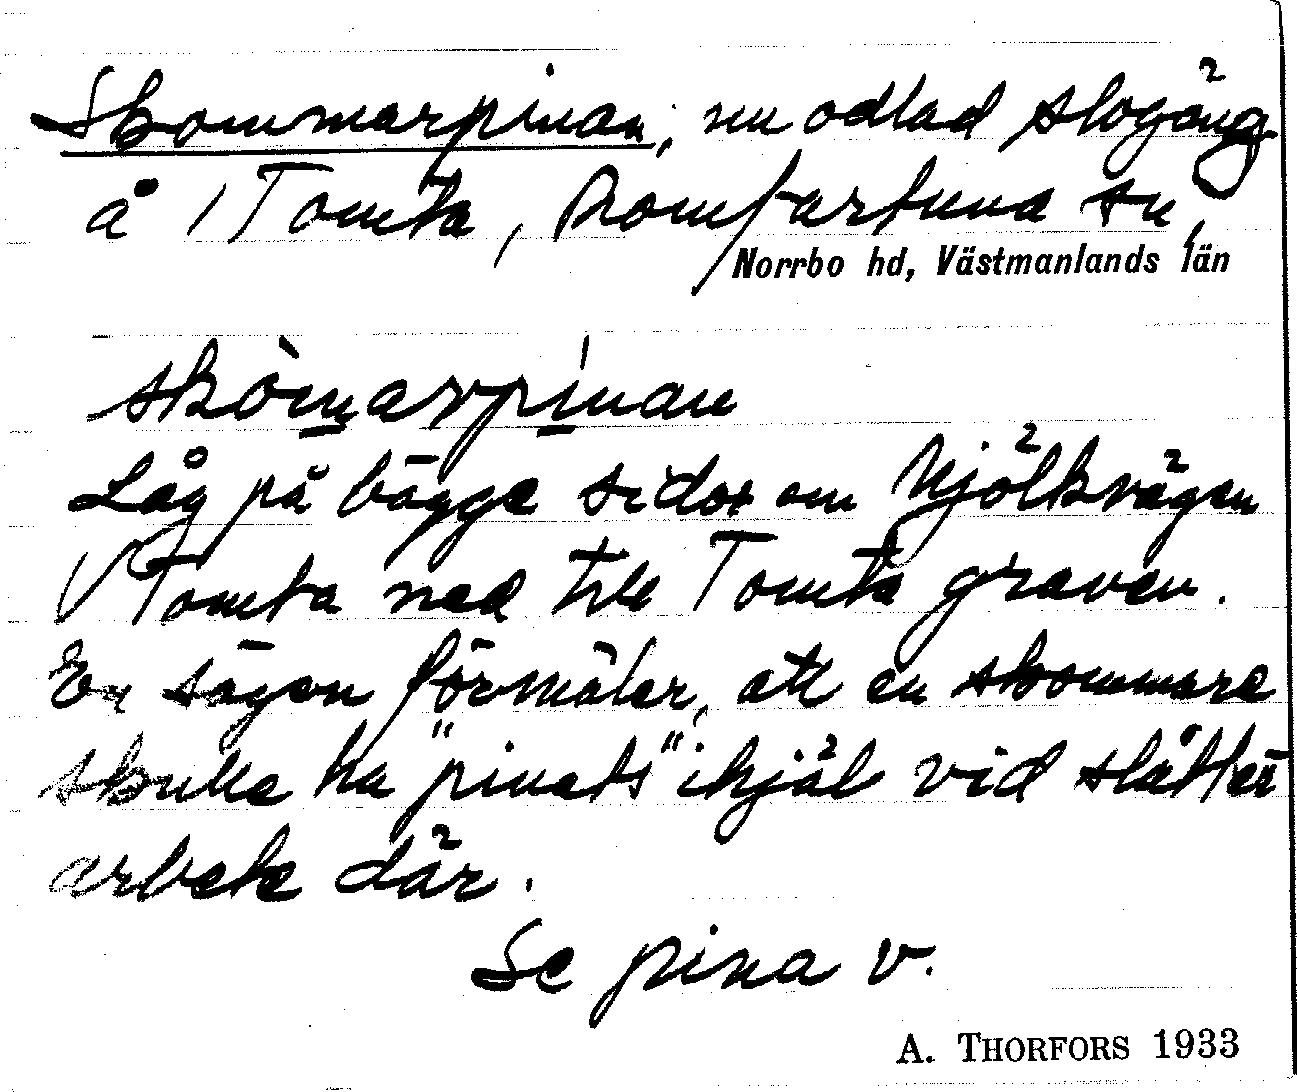 Skommarpinan, nu odlad slogäng
å Tomta, Romfartuna sn,
Norrbo hd, Västmanlands län
skòmarpinan
Låg på bägge sidor om Mjölkvägen
Tomta ned till Tomta graven.
En sägen förmäler, att en skommare
skulle ha "pinats" ihjäl vid slåtter
arbete där.
Se pina v.
A. THORFORS 1933